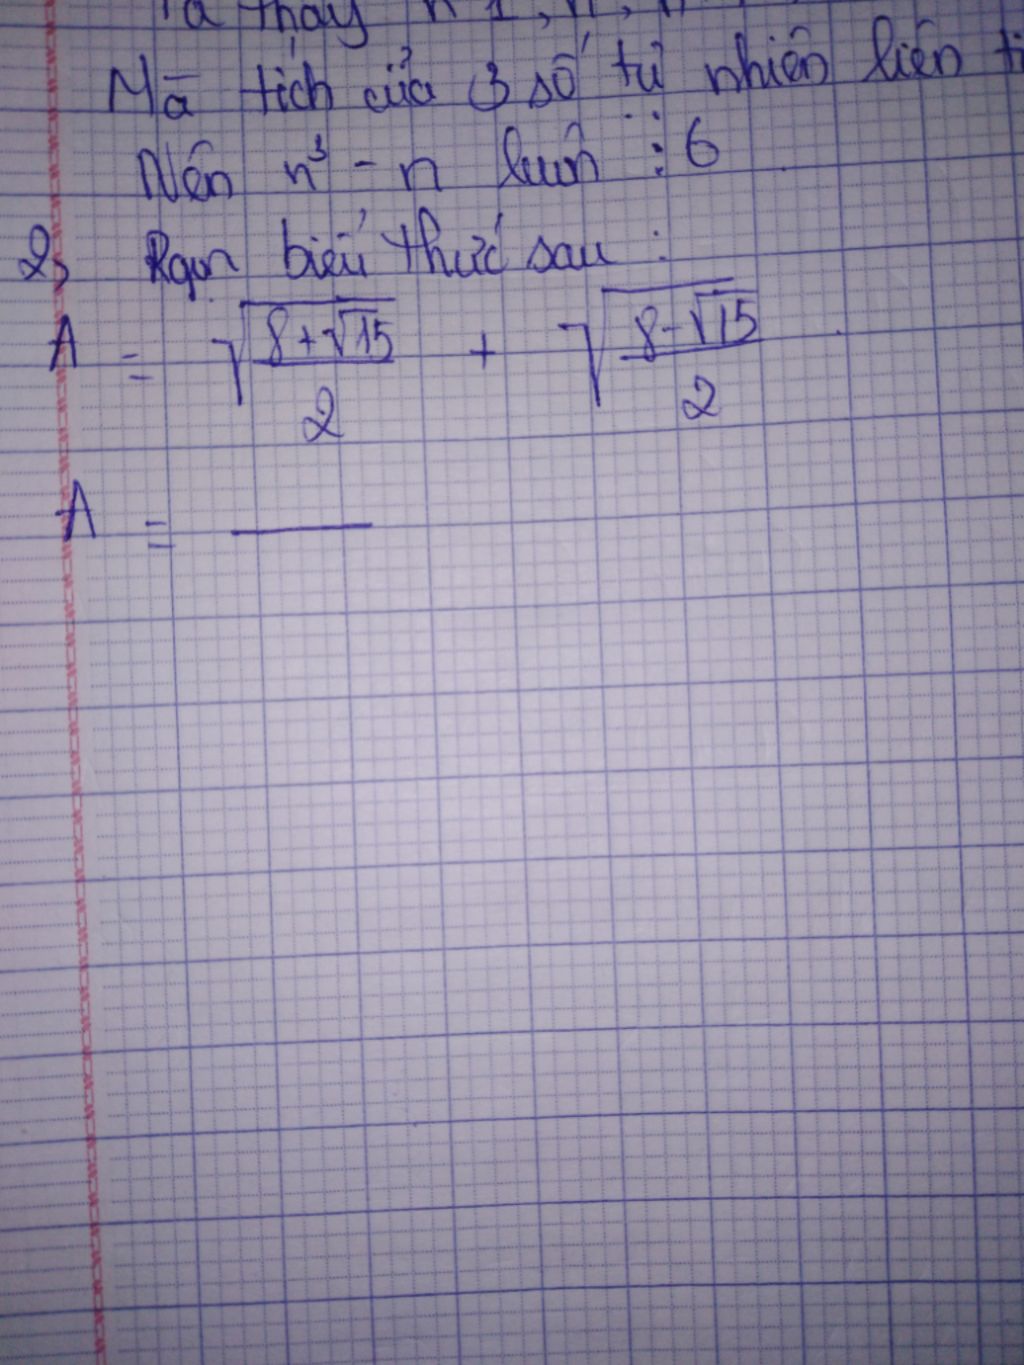 Ta thấy n-1, n,
Mà tích của 3 số tự nhiên liên
Nên n³ - n luôn ⋮ 6
2, Rgọn biểu thức sau :
A = √((8+√15)/2) + √((8-√15)/2)
A =